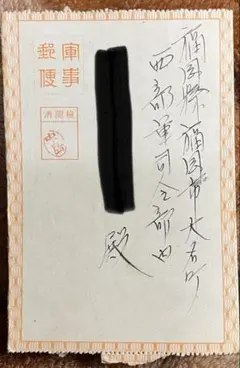 福岡縣福岡市大名町
西部軍司令部内
殿
軍事
郵便
檢閲濟